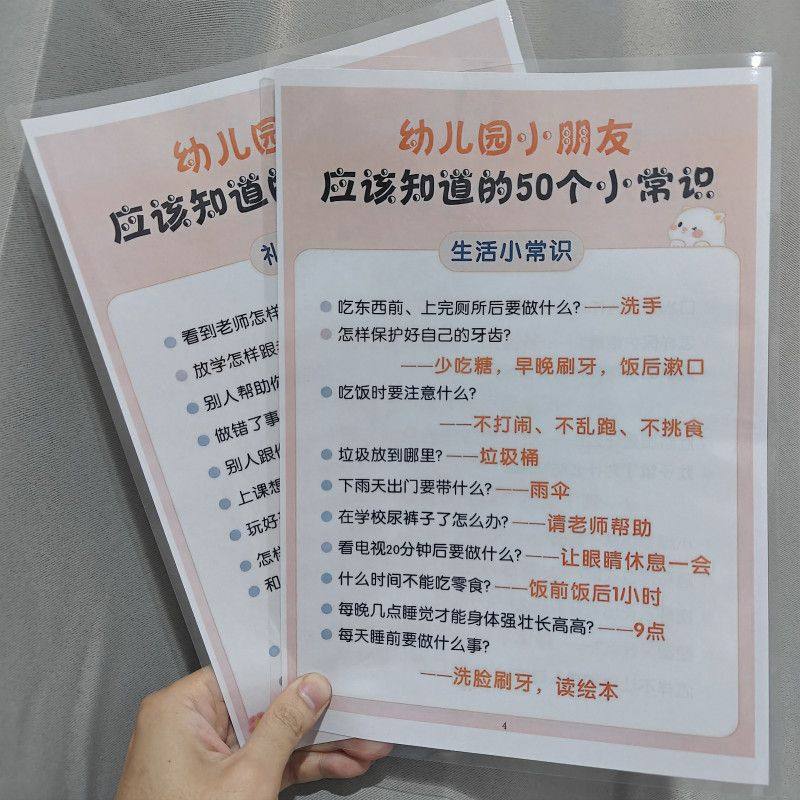 幼儿园小朋友
应该知道的50个小常识
生活小常识
吃东西前、上完厕所后要做什么?——洗手
怎样保护好自己的牙齿?
——少吃糖，早晚刷牙，饭后漱口
吃饭时要注意什么?
——不打闹、不乱跑、不挑食
垃圾放到哪里?——垃圾桶
下雨天出门要带什么?——雨伞
在学校尿裤子了怎么办?——请老师帮助
看电视20分钟后要做什么?——让眼睛休息一会
什么时间不能吃零食?——饭前饭后1小时
每晚几点睡觉才能身体强壮长高高?——9点
每天睡前要做什么事?
——洗脸刷牙，读绘本
4
幼儿园
应该知道的
礼
看到老师怎样
放学怎样跟
别人帮助你
做错了事
别人跟你
上课想
玩好
怎样
和